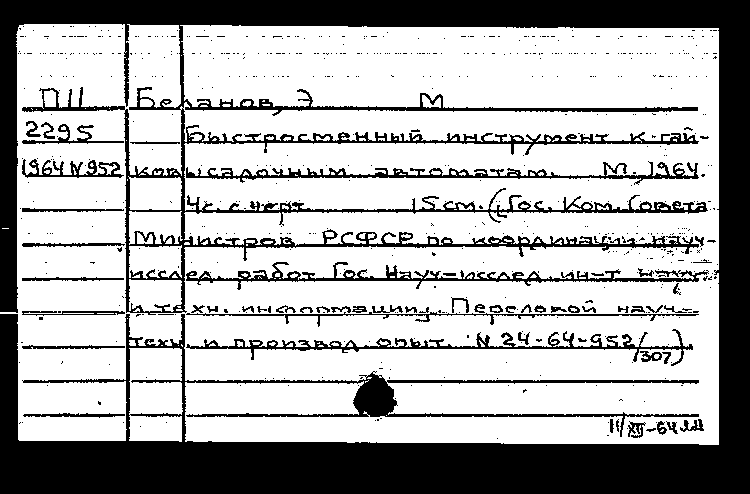 П11 Беланов, Э М
2295 Быстросменный инструмент к гай-
1964 N 952 ковысадочным автоматам. М., 1964.
4с. с черт. 15 см. (Гос. Ком. Совета
Министров РСФСР по координации науч-
исслед. работ Гос. Науч-исслед. ин-т науч.
и техн. информации. Передовой науч.-
техн. и производ. опыт. N 24-64-952/307).
11/XII-64